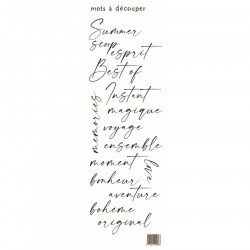 mots à découper
Summer
scoop
esprit
Best of
Instant
magique
memories
voyage
ensemble
moment
live
bonheur
aventure
bohème
original